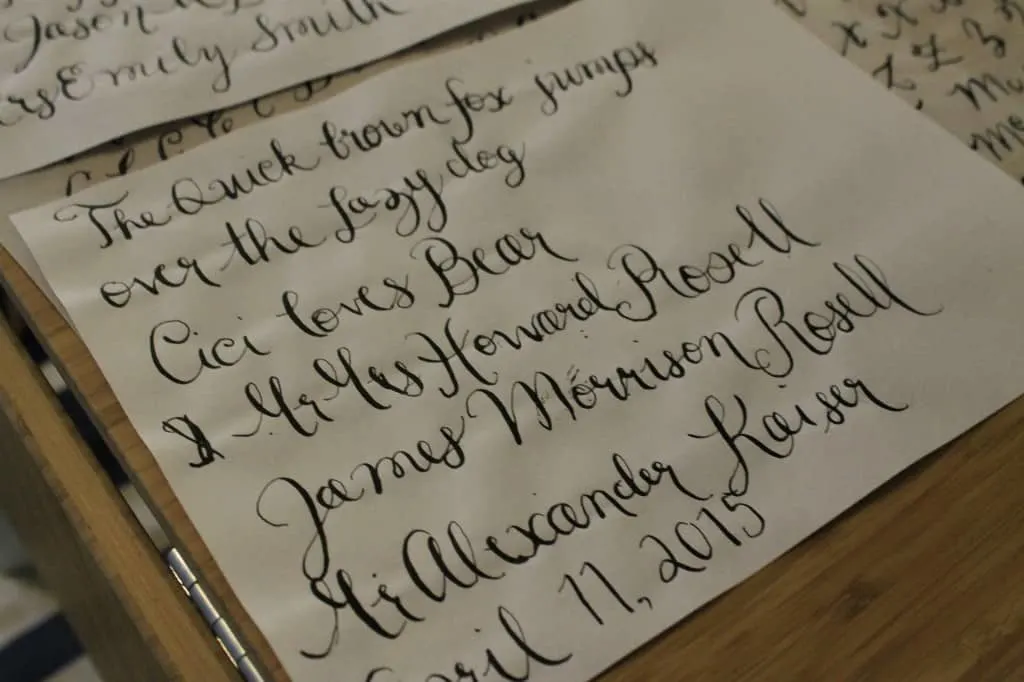 Jason
Emily Smith
The Quick brown fox jumps
over the lazy dog
Cici loves Bear
Mr Mrs Howard Rosell
James Morrison Rosell
Mr Alexander Kaiser
April 11, 2015
x x
z z z